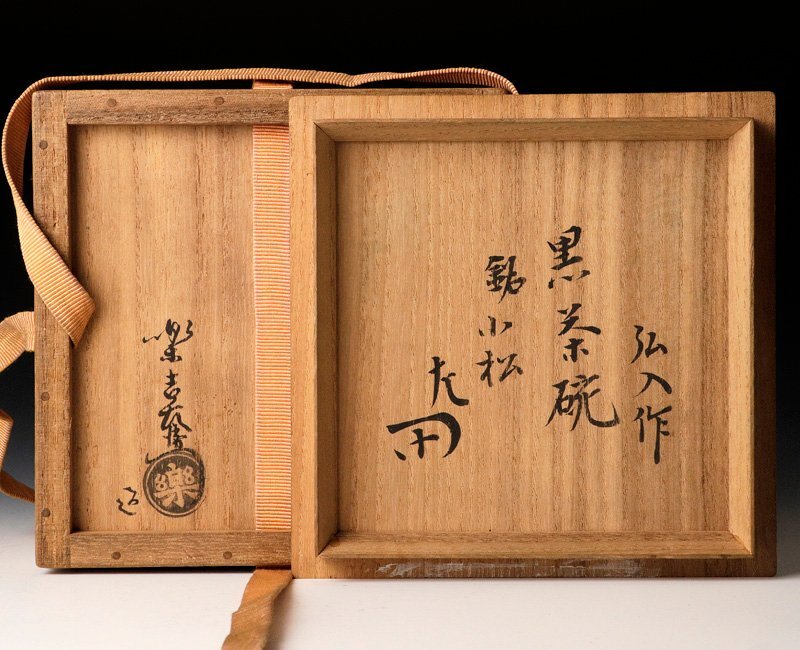 弘入作
黒茶碗
銘小松
左
樂吉左衛門
樂
造